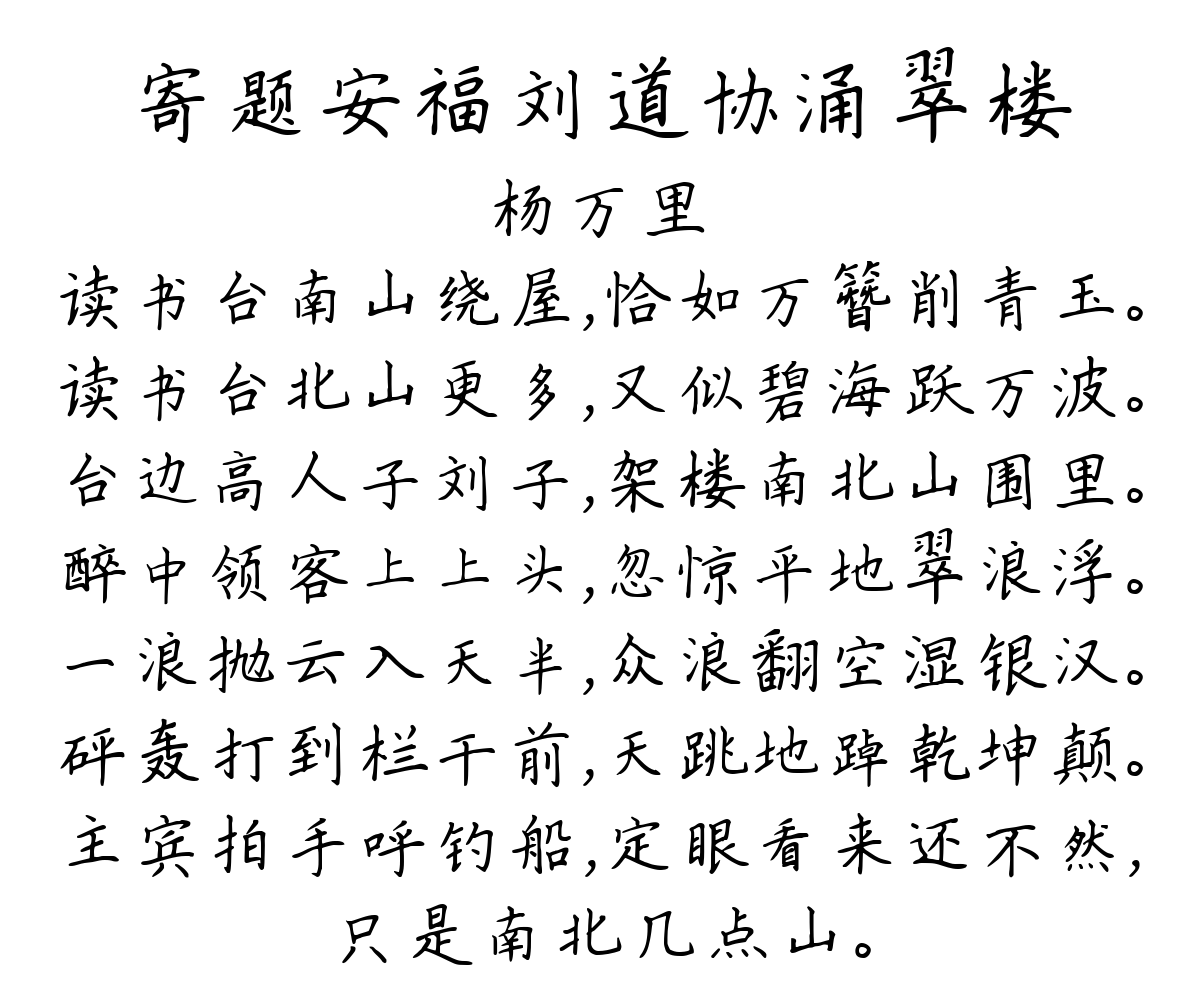 寄题安福刘道协涌翠楼
杨万里
读书台南山绕屋,恰如万簪削青玉。
读书台北山更多,又似碧海跃万波。
台边高人子刘子,架楼南北山围里。
醉中领客上上头,忽惊平地翠浪浮。
一浪抛云入天半,众浪翻空湿银汉。
砰轰打到栏干前,天跳地踔乾坤颠。
主宾拍手呼钓船,定眼看来还不然,
只是南北几点山。